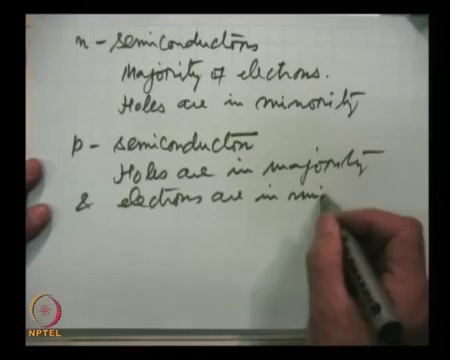 n - semiconductors
Majority of electrons.
Holes are in minority
p - semiconductor
Holes are in majority
& electrons are in mi
NPTEL